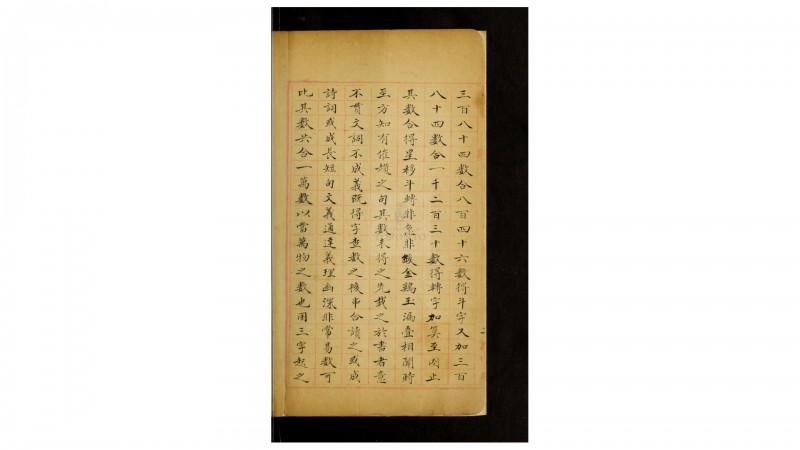 三百八十四數合八百四十六數得斗字又加三百
八十四數合一千二百三十數得轉字如算至圈止
其數合得星移斗轉非急非緩金鷄玉漏壹相聞時
至方知有催趲之句其數未得之先載之於書者意
不貫文詞不成義既得字查數之後串合讀之或成
詩詞或成長短句文義通達義理幽深非常易數可
比其數共合一萬數以當萬物之數也用三字起之